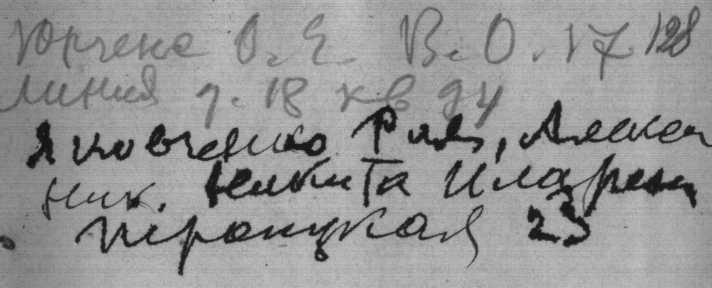 Юрченко О. Е. В. О. 17 128
линия д. 18 кв 94
Яковченко Рая,
ник. Никита Илларион
Троицкая 23